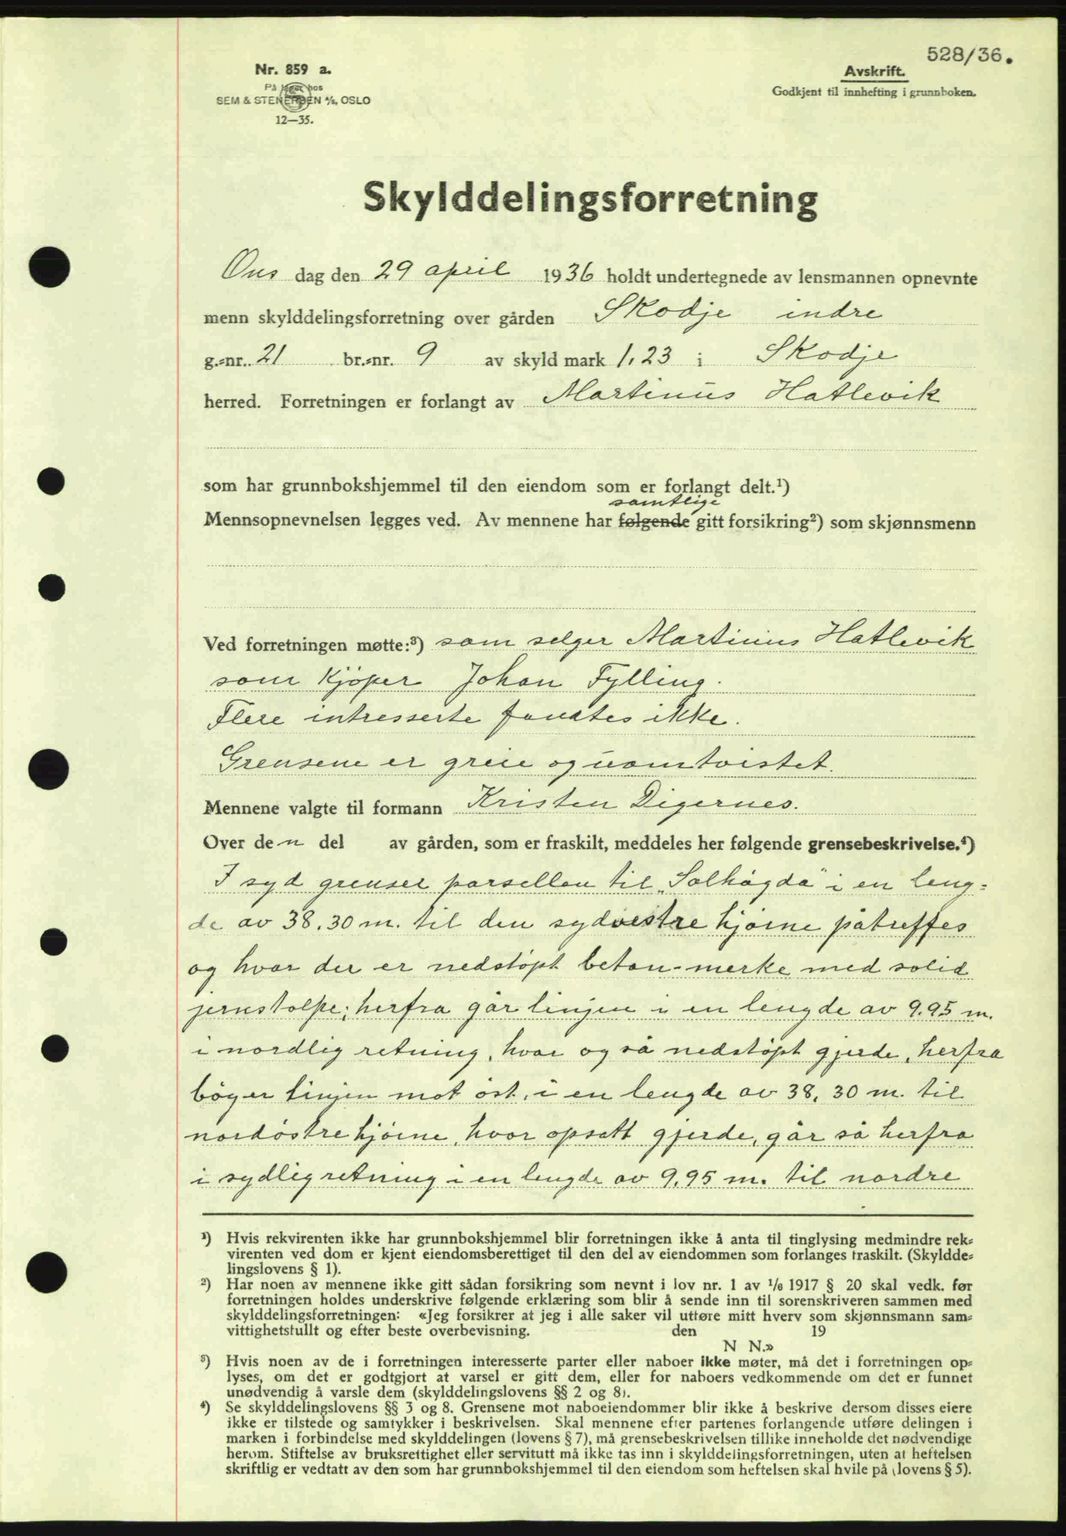 528/36.
Nr. 859 a.
På lager hos
SEM & STENERSEN A/S, OSLO
12—35.
Avskrift.
Godkjent til innhefting i grunnboken.
Skylddelingsforretning
Ons dag den 29 april 1936 holdt undertegnede av lensmannen opnevnte
menn skylddelingsforretning over gården Skodje indre
g.=nr. 21 br.=nr. 9 av skyld mark 1,23 i Skodje
herred. Forretningen er forlangt av Martinus Hatlevik
som har grunnbokshjemmel til den eiendom som er forlangt delt.¹)
samtlige
Mennsopnevnelsen legges ved. Av mennene har følgende gitt forsikring²) som skjønnsmenn
Ved forretningen møtte:³) som selger Martinus Hatlevik
som kjöper Johan Fylling.
Flere intresserte fandtes ikke.
Grensene er greie og uomtvistet.
Mennene valgte til formann Kristen Digernes.
Over den del av gården, som er fraskilt, meddeles her følgende grensebeskrivelse.⁴)
I syd grenser parsellen til „Solhögda" i en leng=
de av 38.30 m. til den sydvestre hjörne påtreffes
og hvor der er nedstöpt beton-merke med solid
jernstolpe; herfra går linjen i en lengde av 9.95 m.
i nordlig retning, hvor og så nedstöpt gjerde, herfra
böyer linjen mot öst, i en lengde av 38,30 m. til
nordöstre hjörne, hvor opsatt gjerde, går så herfra
i sydlig retning i en lengde av 9,95 m. til nordre
¹) Hvis rekvirenten ikke har grunnbokshjemmel blir forretningen ikke å anta til tinglysing medmindre rek=
virenten ved dom er kjent eiendomsberettiget til den del av eiendommen som forlanges fraskilt. (Skyldde=
lingslovens § 1).
²) Har noen av mennene ikke gitt sådan forsikring som nevnt i lov nr. 1 av 1/6 1917 § 20 skal vedk. før
forretningen holdes underskrive følgende erklæring som blir å sende inn til sorenskriveren sammen med
skylddelingsforretningen: «Jeg forsikrer at jeg i alle saker vil utføre mitt hverv som skjønnsmann sam=
vittighetsfullt og efter beste overbevisning. den 19
N N.»
³) Hvis noen av de i forretningen interesserte parter eller naboer ikke møter, må det i forretningen op=
lyses, om det er godtgjort at varsel er gitt dem, eller for naboers vedkommende om det er funnet
unødvendig å varsle dem (skylddelingslovens §§ 2 og 8).
⁴) Se skylddelingslovens §§ 3 og 8. Grensene mot naboeiendommer blir ikke å beskrive dersom disses eiere
ikke er tilstede og samtykker i beskrivelsen. Skal mennene efter partenes forlangende utføre delingen i
marken i forbindelse med skylddelingen (lovens § 7), må grensebeskrivelsen tillike inneholde det nødvendige
herom. Stiftelse av bruksrettighet eller servitutt må ikke tas inn i skylddelingsforretningen, uten at heftelsen
skriftlig er vedtatt av den som har grunnbokshjemmel til den eiendom som heftelsen skal hvile på (lovens § 5).